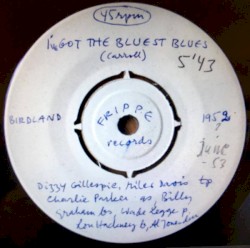 45 rpm
I'm GOT THE BLUEST BLUES
(Carroll)
5'43
BIRDLAND
FRIPPE
records
1952
?
june
-53
Dizzy Gillespie, Miles Davis tp
Charlie Parker as, Bill
Graham bs, Wade Legge p
Lou Hackney b, Al Jones dm